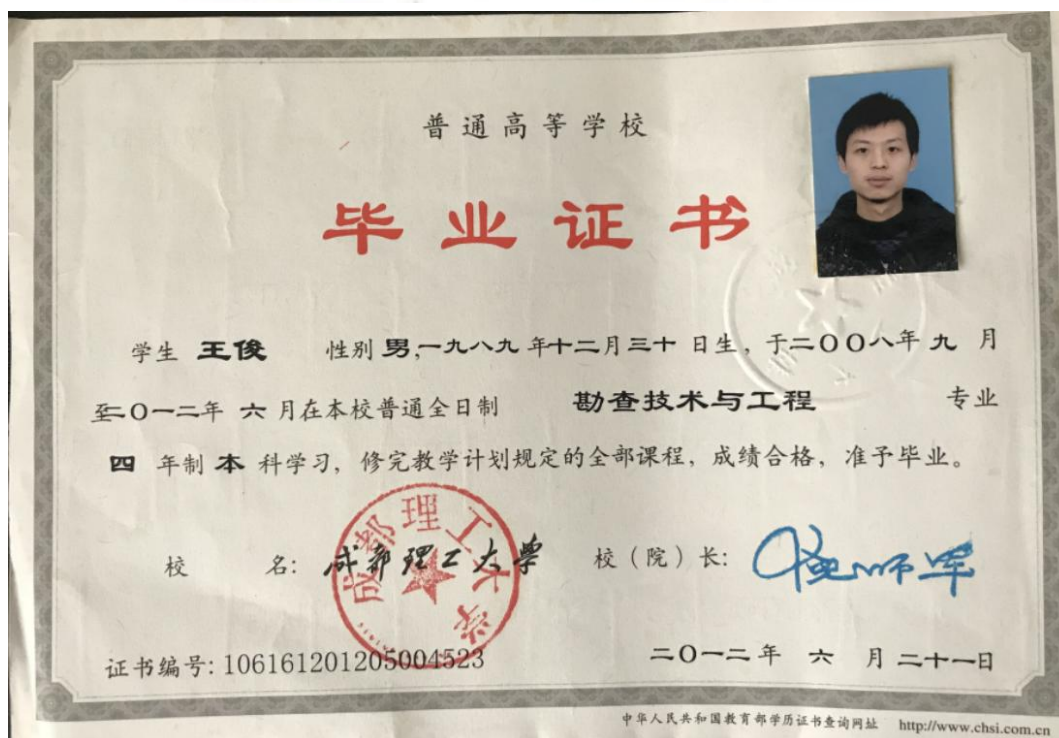 普通高等学校
毕业证书
学生 王俊 性别 男,一九八九 年十二月三十 日生，于二〇〇八年 九 月
至二〇一二年 六 月在本校普通全日制 勘查技术与工程 专业
四 年制 本 科学习，修完教学计划规定的全部课程，成绩合格，准予毕业。
校 名: 成都理工大学 校（院）长:
成都理工大学
证书编号: 106161201205004523 二〇一二 年 六 月 二十一日
中华人民共和国教育部学历证书查询网址 http://www.chsi.com.cn